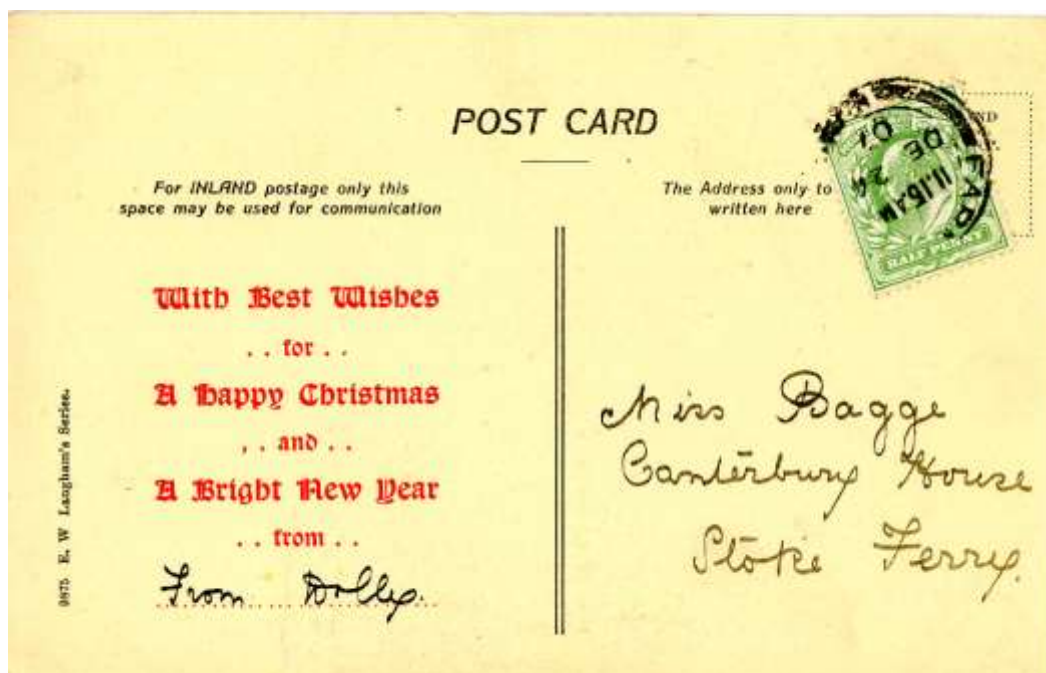 POST CARD
For INLAND postage only this
space may be used for communication
The Address only to
written here
With Best Wishes
. . for . .
A Happy Christmas
. . and . .
A Bright New Year
. . from . .
From Dolly.
9875 E. W Langham's Series.
Miss Bagge
Canterbury House
Stoke Ferry.
HALF PENNY
11.15AM
24
DE
07